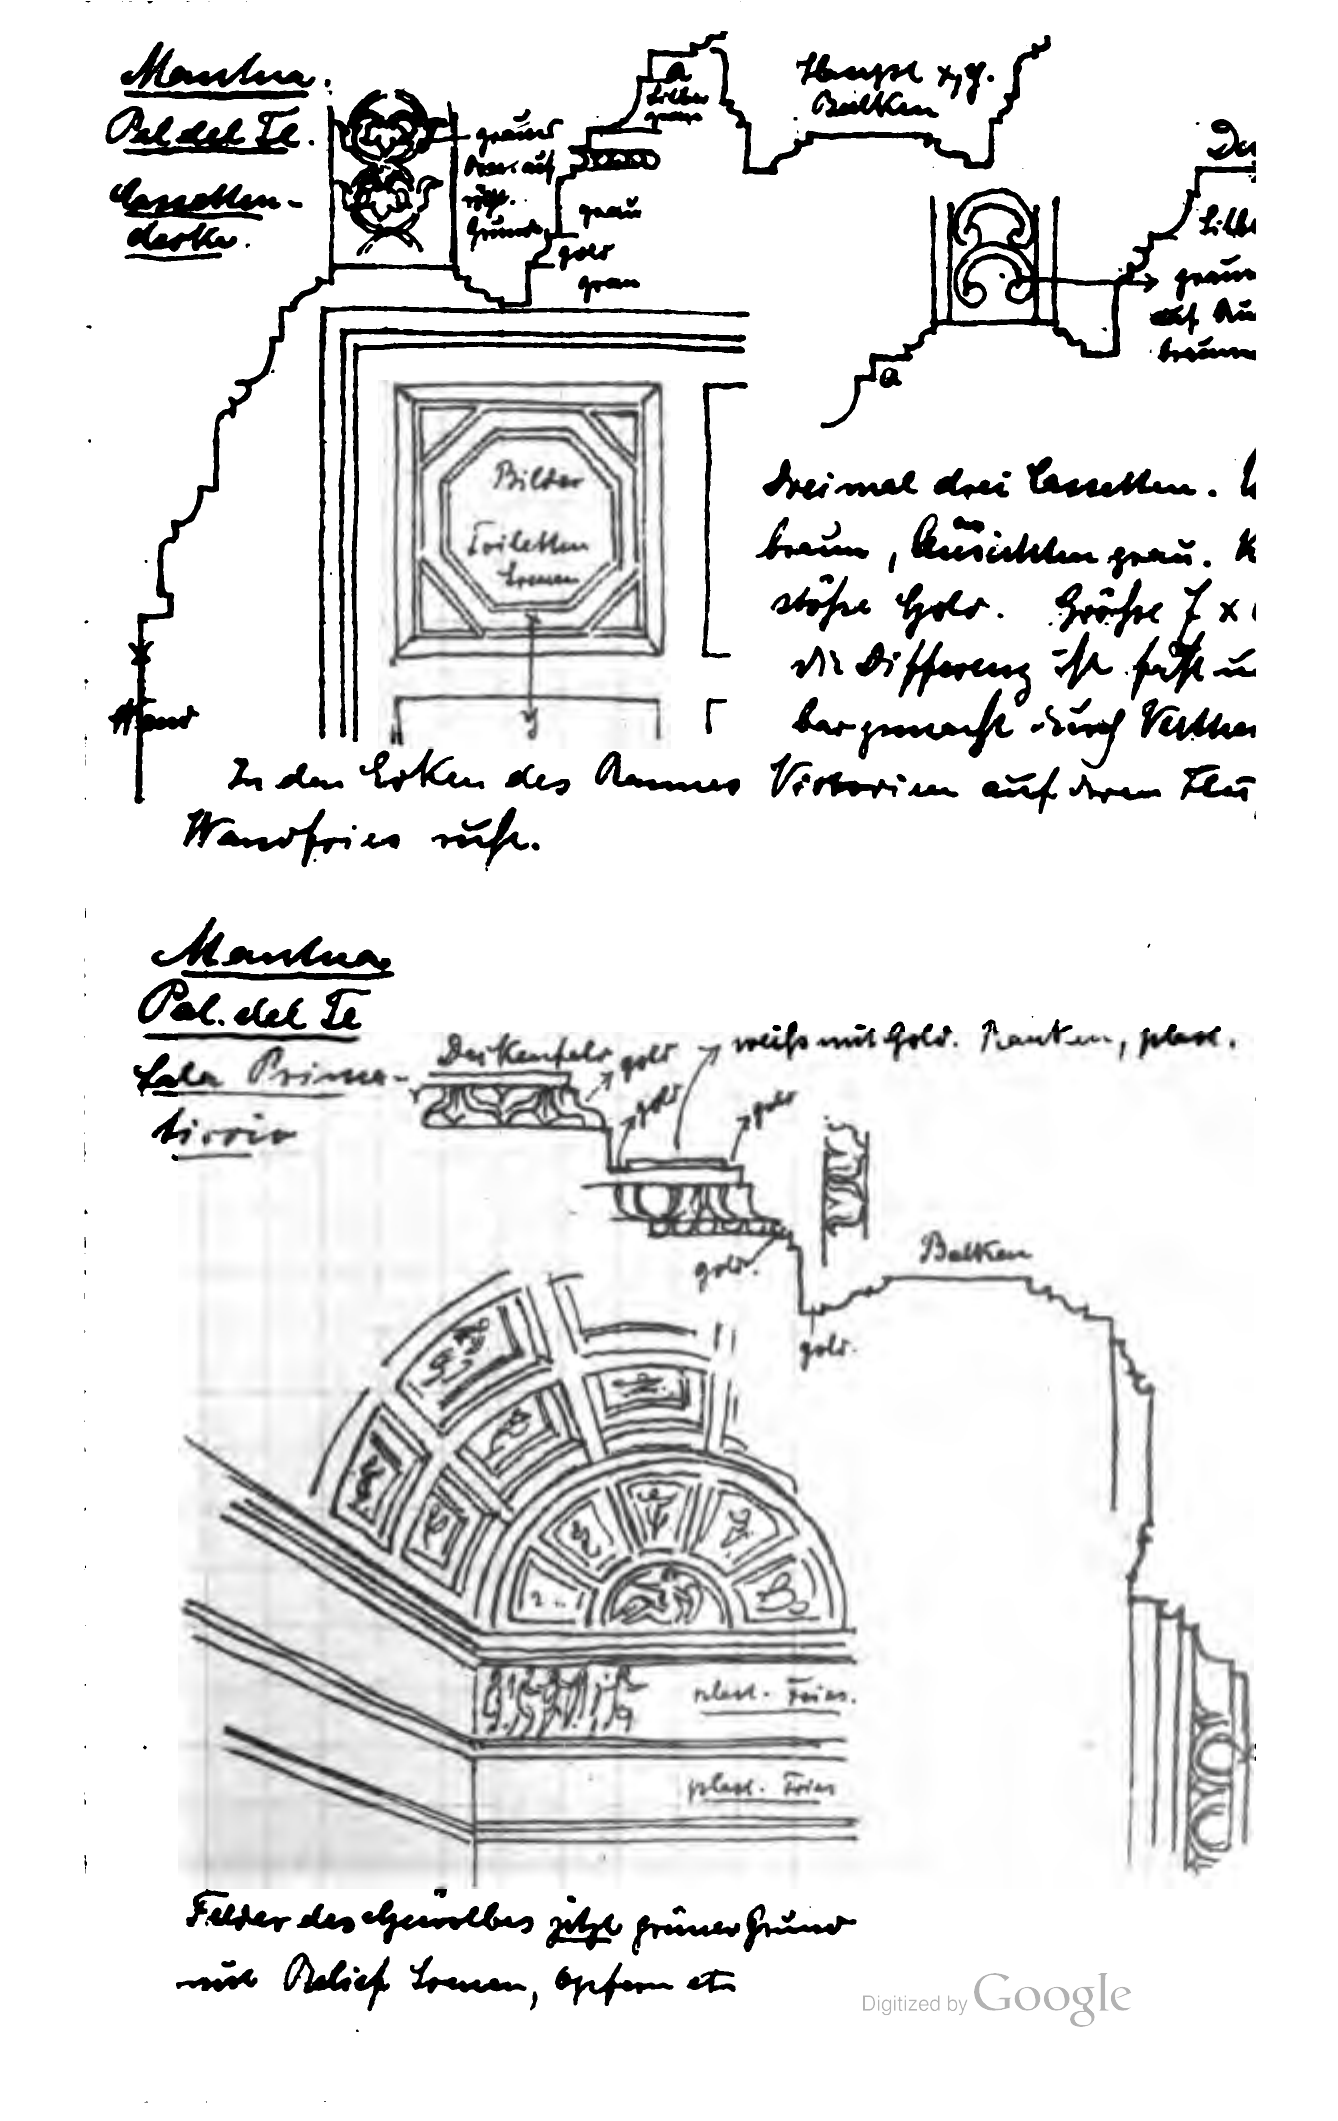 Mantua.
Pal del Te.
Cassetten-
decke.
a
Silber
grau
grau
gold
grau
Haupt x, y.
Balken
auf
braun
a
Bilder
Toiletten
Scenen
y
x
Wand
Dreimal drei Cassetten.
braun, Ansichten grau.
stöße Gold. Größe 7 x
die Differenz ist fast
bar gemacht durch
In den Ecken des Raumes Victorien auf deren
Wandfries ruht.
Mantua
Pal. del Te
Sala Prima-
ticcio
Deckenfeld
gold
weiß mit Gold. Ranken, plast.
gold
gold
gold.
Balken
gold.
plast. Fries.
plast. Fries
Felder des Gewölbes jetzt grüner Grund
mit Relief Scenen, Opfern etc
Digitized by Google